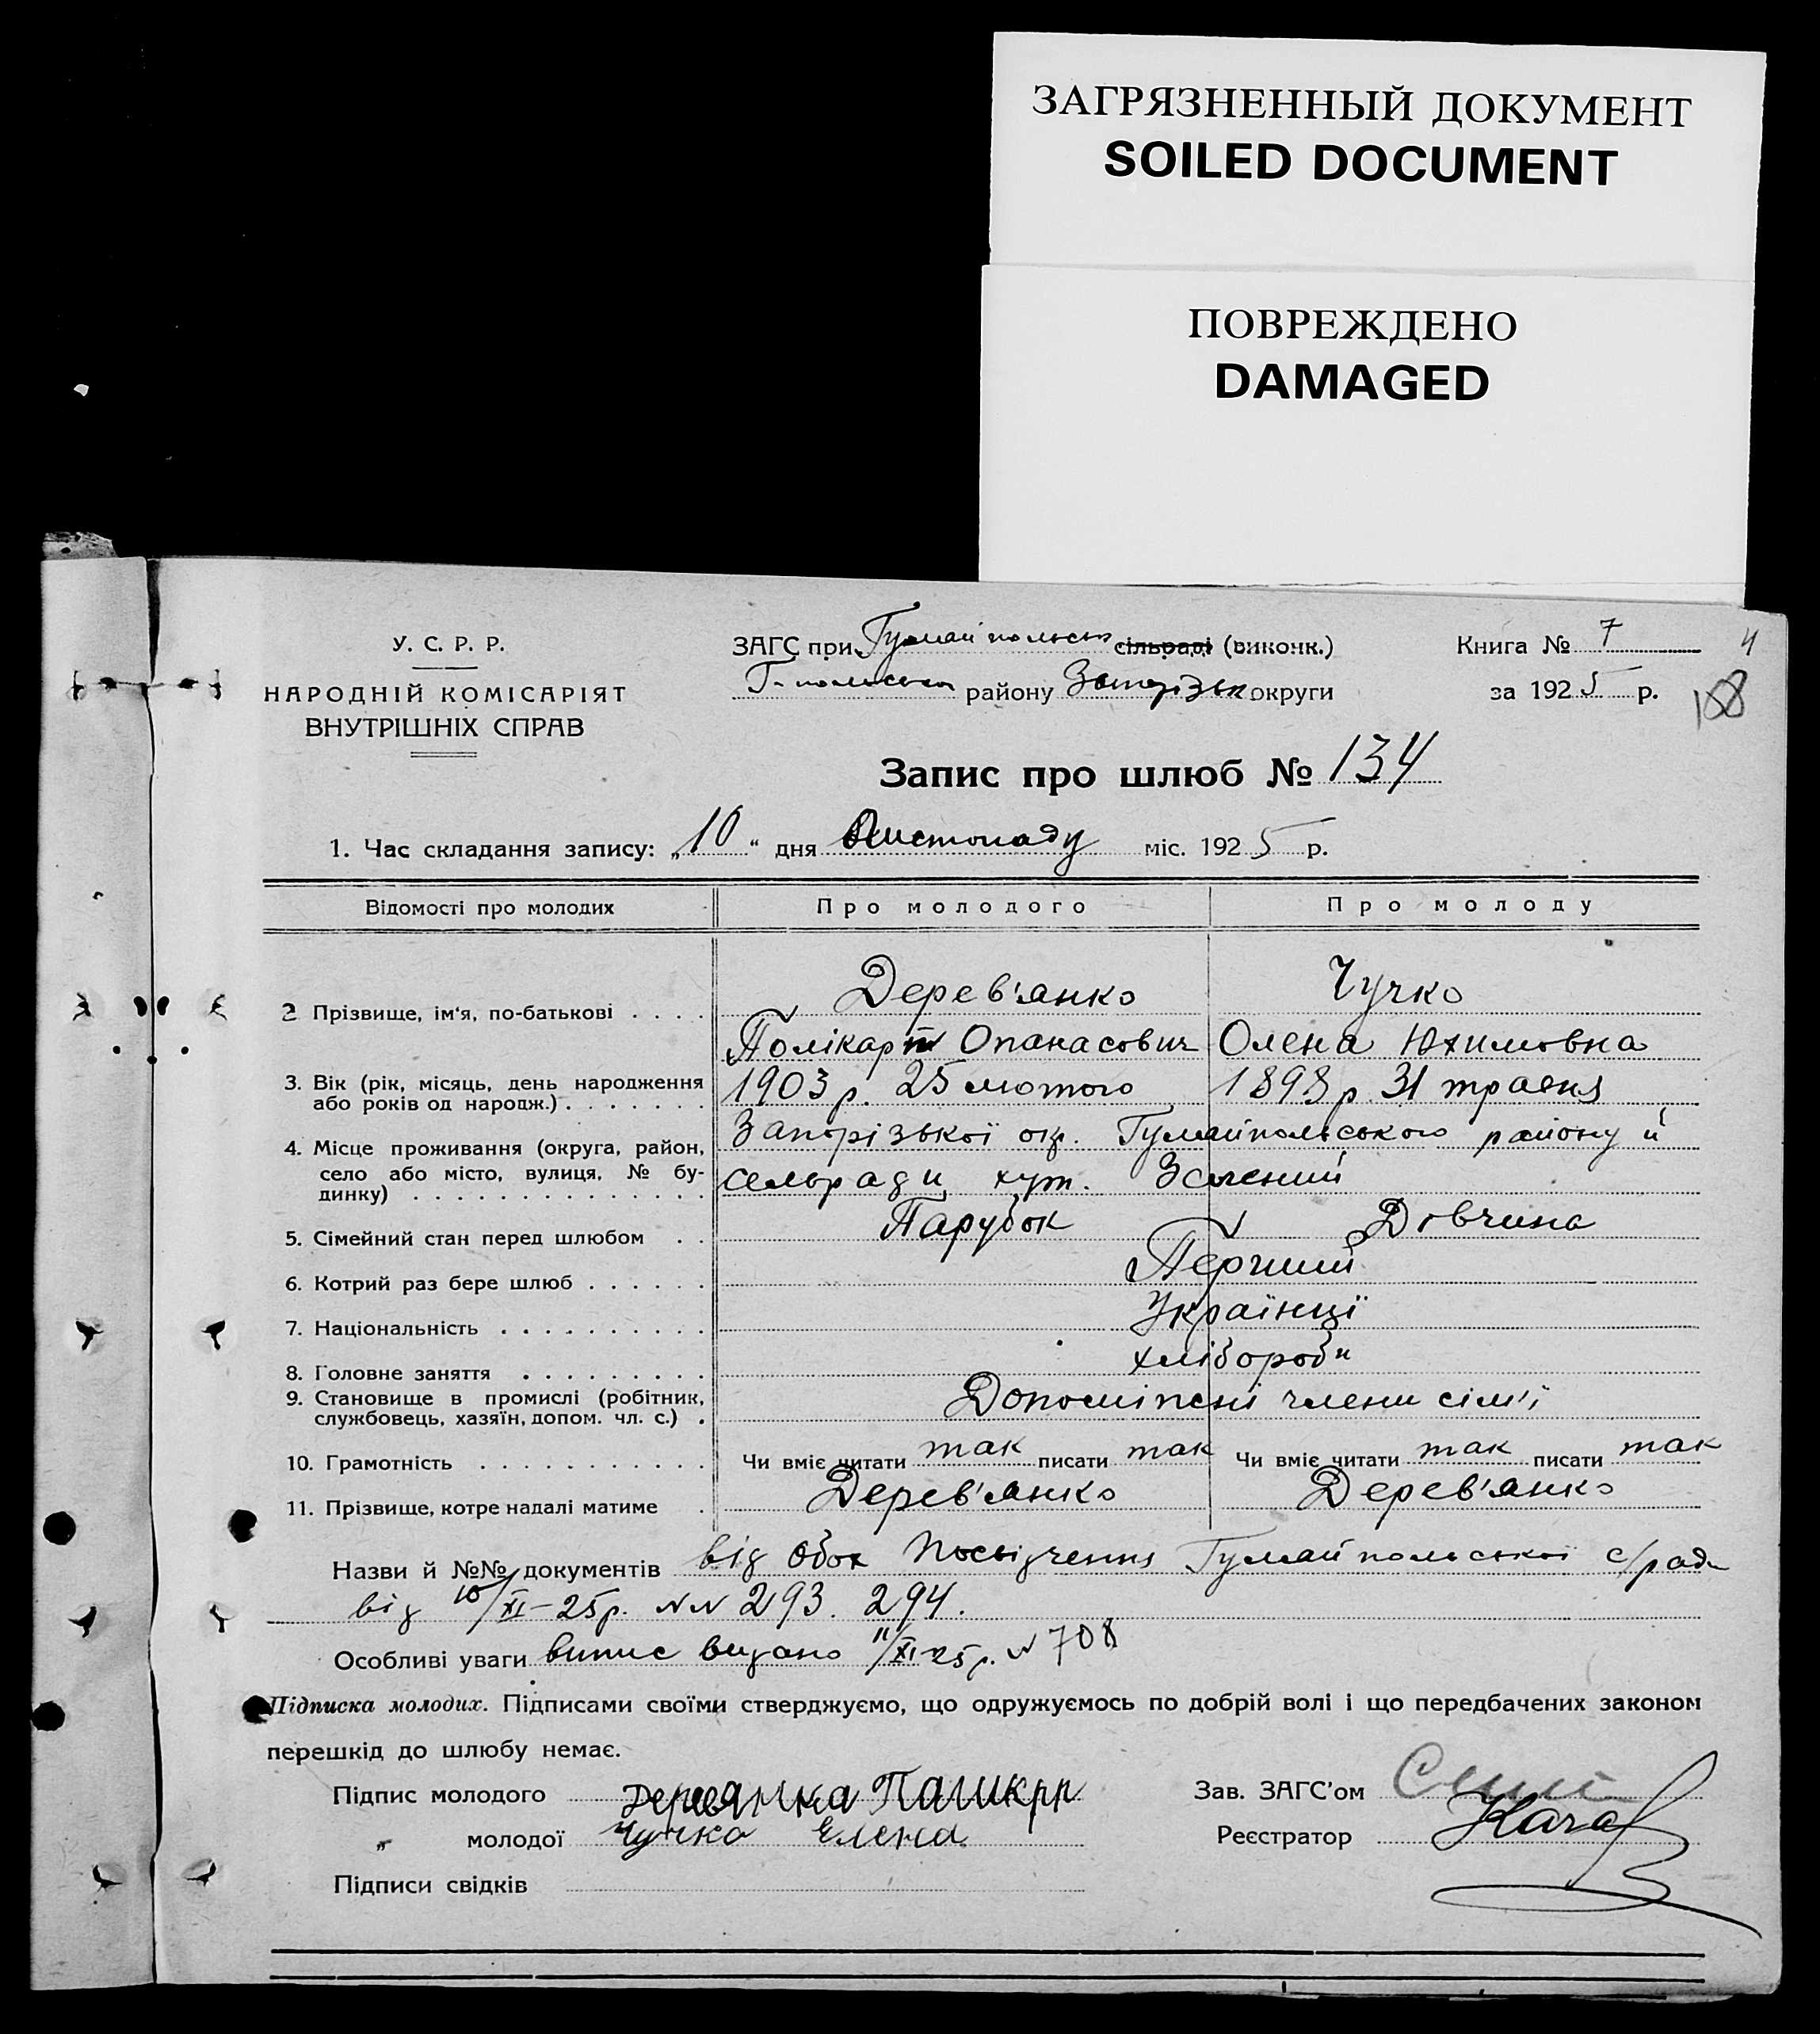 ЗАГРЯЗНЕННЫЙ ДОКУМЕНТ
SOILED DOCUMENT
ПОВРЕЖДЕНО
DAMAGED
У. С. Р. Р.
НАРОДНІЙ КОМІСАРІЯТ
ВНУТРІШНІХ СПРАВ
ЗАГС при Гуляйпольськ сільраді (виконк.)
Г-польськ району Запорізьк округи
Книга № 7
за 1925 р.
4
188
Запис про шлюб № 134
1. Час складання запису: „10“ дня Листопаду міс. 1925 р.
Відомості про молодих Про молодого Про молоду
2 Прізвище, ім'я, по-батькові . . . . Дерев'янко Чучко
Полікарп Опанасович Олена Юхимовна
3. Вік (рік, місяць, день народження або років од народж.) . . . . . . . 1903 р. 25 лютого 1898 р 31 травня
4. Місце проживання (округа, район, село або місто, вулиця, № будинку) . . . . . . . . . . . . . . Запорізької окр. Гуляйпольського району й
сельради хут. Зелений
5. Сімейний стан перед шлюбом . . Парубок Дівчина
6. Котрий раз бере шлюб . . . . . . Перший
7. Національність . . . . . . . . . . Українці
8. Головне заняття . . . . . . . . . хлібороби
9. Становище в промислі (робітник, службовець, хазяїн, допом. чл. с.) . Допоміжні члени сім'ї
10. Грамотність . . . . . . . . . . . Чи вміє читати так писати так Чи вміє читати так писати так
11. Прізвище, котре надалі матиме . Дерев'янко Дерев'янко
Назви й №№ документів від обох Посвідчення Гуляйпольської с/ради
від 10/XI-25р. NN 293. 294.
Особливі уваги випис видано 11/XI-25р. N 708
Підписка молодих. Підписами своїми стверджуємо, що одружуємось по добрій волі і що передбачених законом
перешкід до шлюбу немає.
Підпис молодого
„ молодої Чучко Елена
Підписи свідків
Зав. ЗАГС'ом
Реєстратор